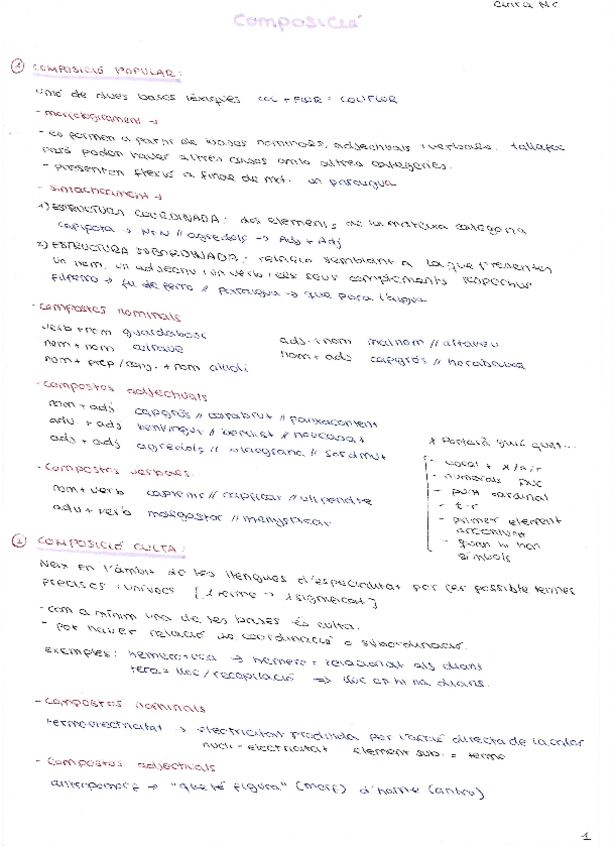 Composició
① COMPOSICIÓ POPULAR:
Unió de dues bases lèxiques col + FLOR = COLIFLOR
- morfològicament →
- es formen a partir de bases nominals, adjectivals i verbals. tallafoc
però poden haver altres casos amb altres categories.
- presenten flexió a final de mot. un paraigua
- sintàcticament →
1) ESTRUCTURA COORDINADA: dos elements de la mateixa categoria
capipota → N+N // agredolç → Adj + Adj
2) ESTRUCTURA SUBORDINADA: relació semblant a la que presenten
un nom, un adjectiu i un verb i els seus complements respectius
filferro → fil de ferro // paraigua → que para l'aigua
- compostos nominals
verb + nom guardabosc
nom + nom
nom + prep / conj. + nom allioli
adj. + nom malnom // altaveu
nom + adj capgròs //
- compostos adjectivals
nom + adj capgròs // // panxacontent
adv. + adj benvingut // // nouvingut
adj + adj agredolç // // sordmut
- compostos verbals
nom + verb // capficar //
adv + verb malgastar // menysprear
* Portarà guió quan...
- vocal + x/s/r
- numerals
- punt cardinal
- t-r
- primer element
accentuat
- quan hi han
símbols
② COMPOSICIÓ CULTA:
Neix en l'àmbit de les llengües d'especialitat per fer possible termes
precisos i unívocs [1 terme → 1 significat]
- com a mínim una de les bases és culta.
- pot haver relació de coordinació o subordinació.
exemples: hemeroteca → hemero = relacionat als diaris
teca = lloc / recopilació ⇒ lloc on hi ha diaris.
- Compostos nominals
termoelectricitat → electricitat produïda per l'acció directa de la calor
nucli - electricitat element sub. = termo
- Compostos adjectivals
antropomorf → "que té figura" (morf) d'home (antro)
1